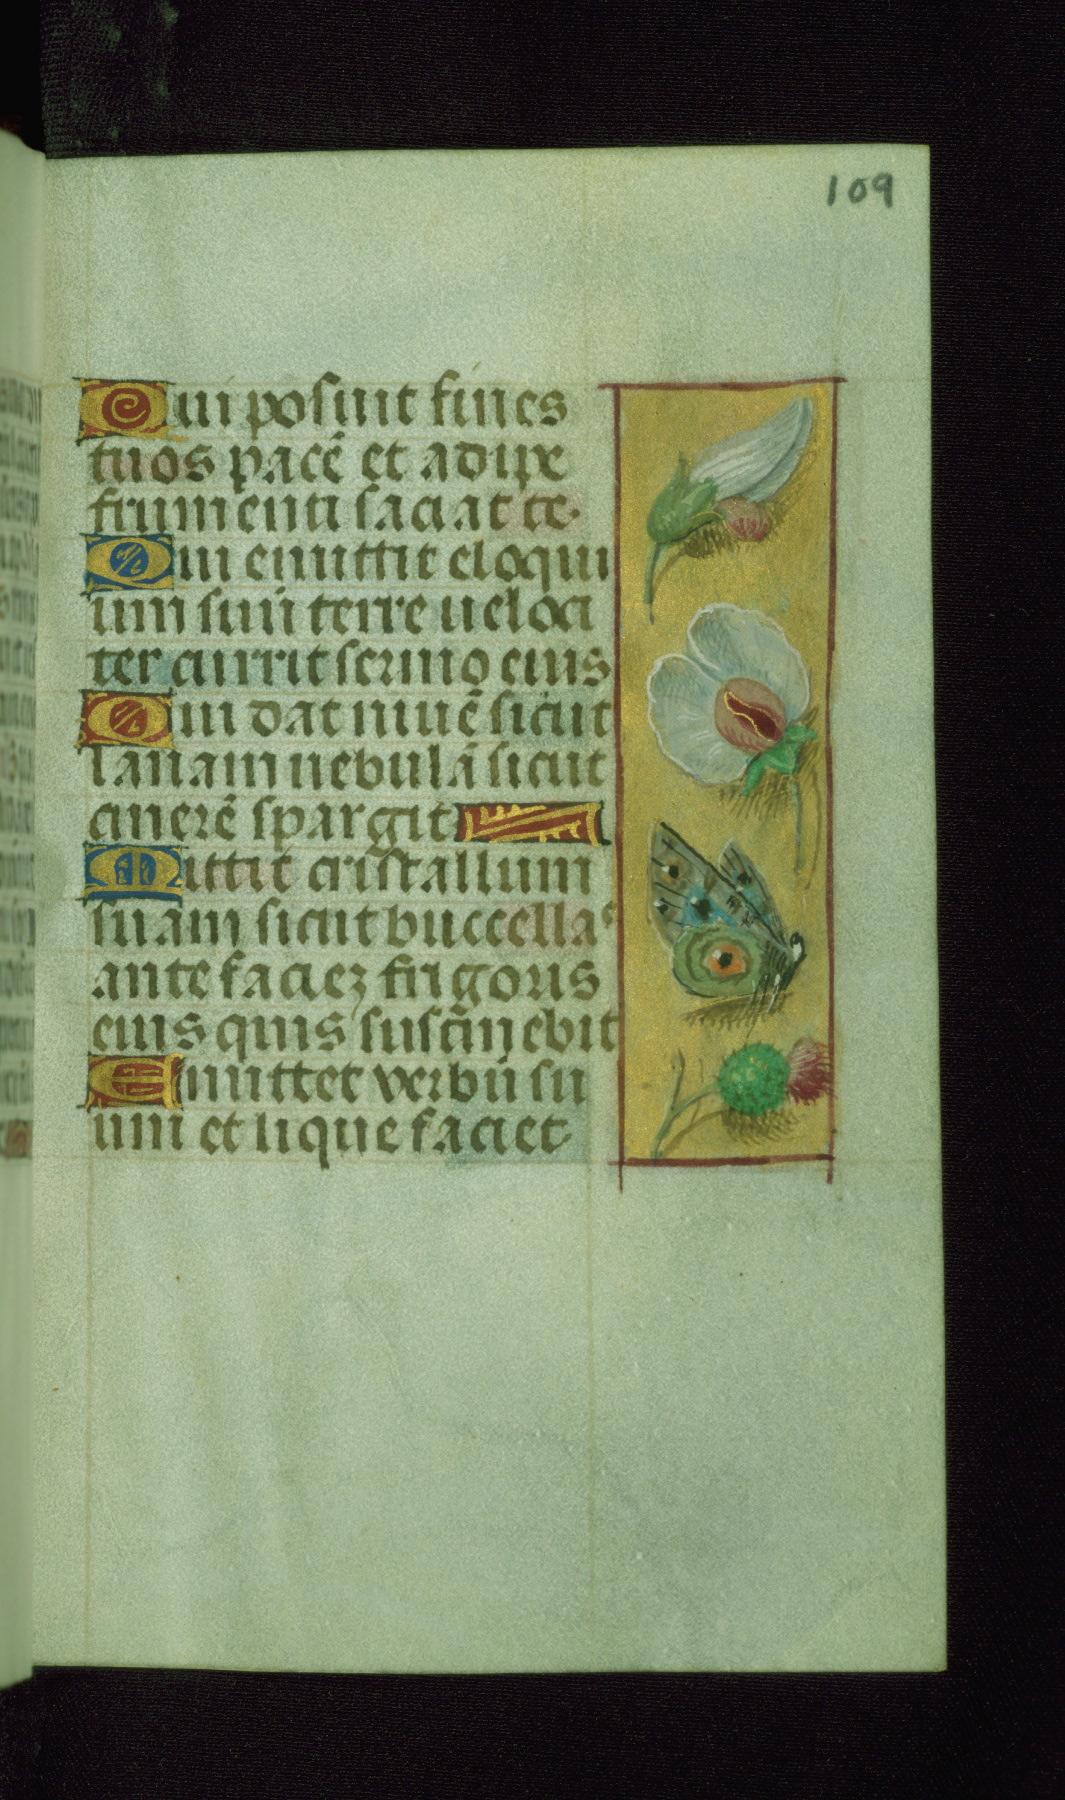 109
Qui posuit fines
tuos pacē et adipe
frumenti saciat te.
Qui emittit eloqui
um suū terre ueloci
ter currit sermo eius
Qui dat niuē sicut
lanam nebulā sicut
cinerē spargit
Mittit cristallum
suam sicut buccellas
ante faciez frigoris
eius quis sustīnebit
Emittet verbū su
um et lique faciet.